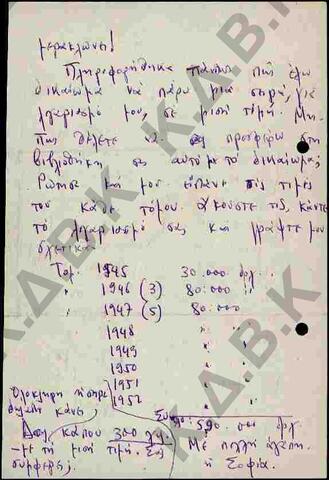 μερακλώνει!
Πληροφορήθηκα πάντως πως έχω
δικαίωμα να πάρω μια σειρά, για
λογαριασμό μου, σε μισή τιμή. Μή-
πως θέλετε να σας προσφέρω στη
βιβλιοθήκη σας αυτό μου το δικαίωμα;
Ρώτησα και μου είπανε τις τιμές
του κάθε τόμου. Ακούστε τις, κάντε
το λογαριασμό σας και γράψτε μου
σχετικά.
Τομ. 1945 30.000 δρχ.
" 1946 (3) 80.000 "
" 1947 (5) 80.000
" 1948 " "
1949 " "
1950 " "
1951 "
1952 "
Ολόκληρη η σειρά 590.000 δρχ
δηλαδή κάνει
κάπου 300 χιλ.
με τη μισή τιμή. Σας
συμφέρει;
Με πολλή αγάπη
η Σοφία.
Κ.Δ.Β.Κ
Κ.Δ.Β.Κ
Κ.Δ.Β.Κ